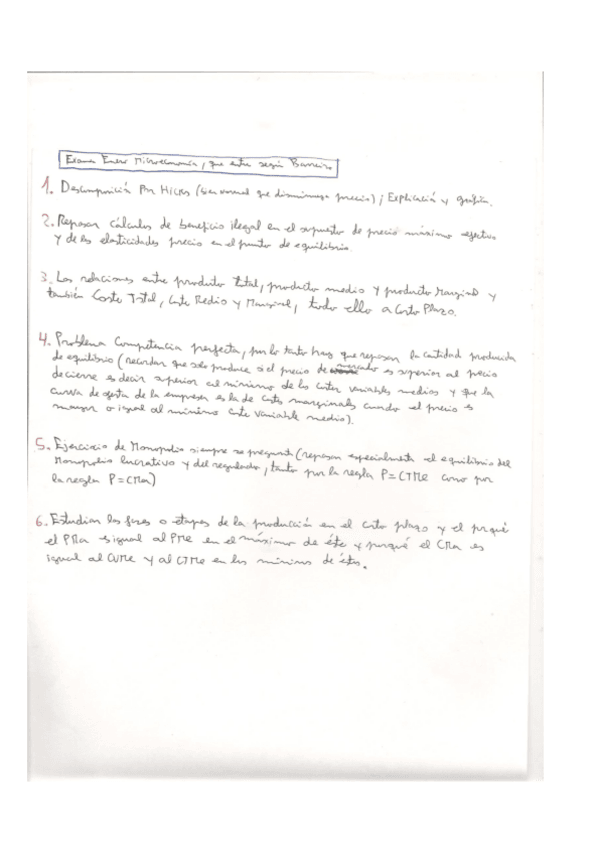 Examen Enero Microeconomía, que entra según Barreiro
1. Descomposición por Hicks (bien normal que disminuye precio); Explicación y gráfica.
2. Repasar cálculos de beneficio ilegal en el supuesto de precio máximo efectivo
y de las elasticidades precio en el punto de equilibrio
3. Las relaciones entre producto Total, producto medio y producto Marginal y
también Coste Total, Coste Medio y Marginal, todo ello a Corto Plazo.
4. Problema Competencia perfecta, por lo tanto hay que repasar la cantidad producida
de equilibrio (recordar que solo produce si el precio de mercado es superior al precio
de cierre es decir superior al mínimo de los costes variables medios y que la
curva de oferta de la empresa es la de costes marginales cuando el precio es
mayor o igual al mínimo coste variable medio).
5. Ejercicio de Monopolio siempre se pregunta (repasar especialmente el equilibrio del
Monopolio lucrativo y del regulador, tanto por la regla P=CTMe como por
la regla P=CMa)
6. Estudiar las fases o etapas de la producción en el corto plazo y el porqué
el PMa es igual al PMe en el máximo de éste y porqué el CMa es
igual al CVMe y al CTMe en los mínimos de éstos.